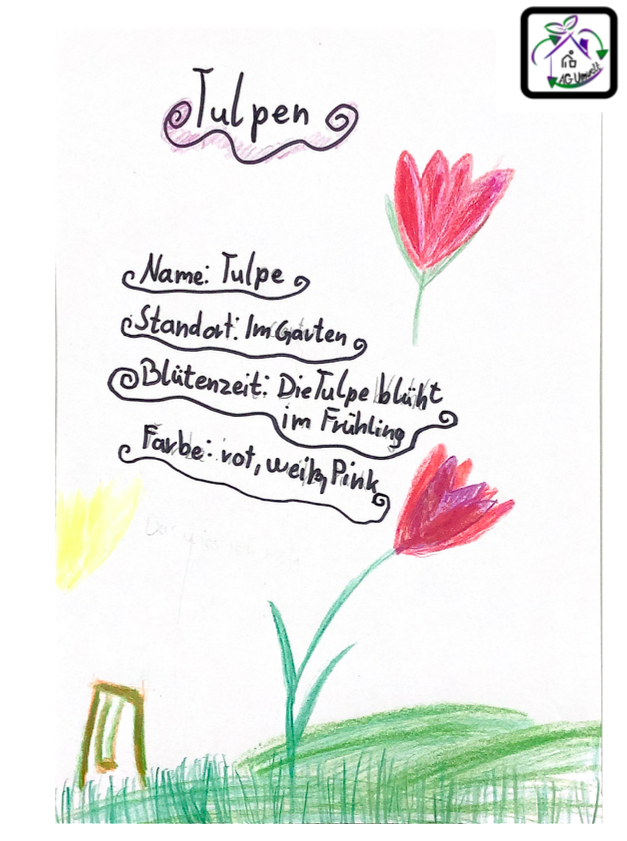 AG Umwelt
Tulpen
Name: Tulpe
Standort: Im Garten
Blütenzeit: Die Tulpe blüht
im Frühling
Farbe: rot, weiß, Pink